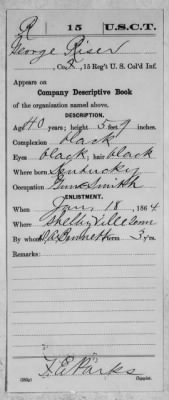 R 15 U.S.C.T.
George Riser
, Co. , 15 Reg't U. S. Col'd Inf.
Appears on
Company Descriptive Book
of the organization named above.
DESCRIPTION.
Age 40 years; height 5 feet 9 inches.
Complexion black
Eyes black; hair black
Where born Kentucky
Occupation Gun Smith
ENLISTMENT.
When Jan. 18, 1864
Where Shelbyville Tenn
By whom Bennett term 3 y'rs.
Remarks:
Parks
Copyist.